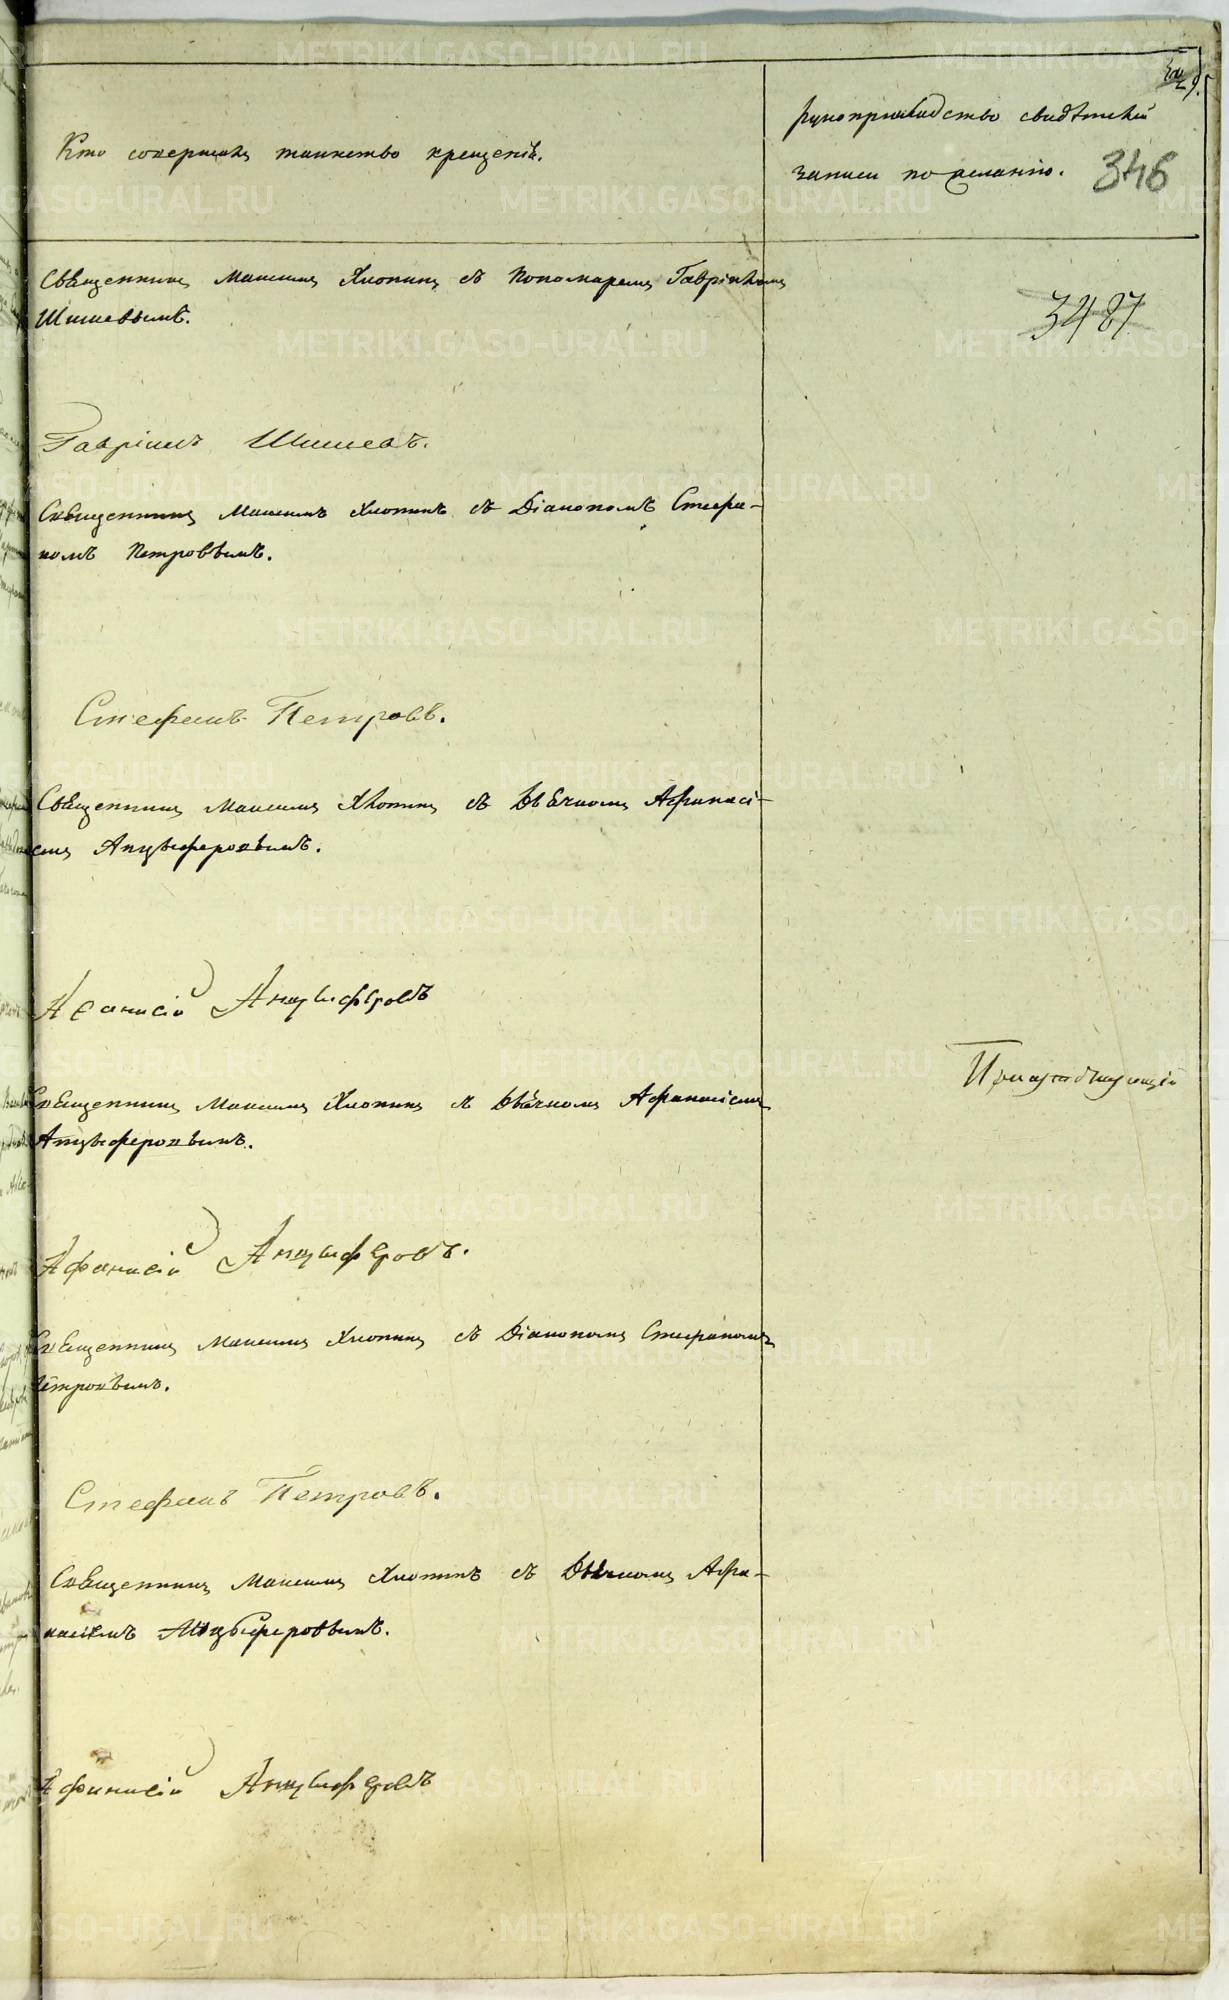 Кто совершалъ таинство крещенія.
рукоприкладство свидѣтелей
записи по желанію.
346
Священникъ Максимъ Хлопинъ съ Пономаремъ Гавріиломъ
Шишевымъ.
3487
Гавріилъ Шишевъ.
Священникъ Максимъ Хлопинъ съ Діакономъ Стефа-
номъ Петровымъ.
Стефанъ Петровъ.
Священникъ Максимъ Хлопинъ съ Дьячкомъ Афанасі-
емъ Анцыферовымъ.
Афанасій Анцыферовъ
Священникъ Максимъ Хлопинъ съ Дьячкомъ Афанасіемъ
Анцыферовымъ.
Афанасій Анцыферовъ.
Священникъ Максимъ Хлопинъ съ Діакономъ Стефаномъ
Петровымъ.
Стефанъ Петровъ.
Священникъ Максимъ Хлопинъ съ Дьячкомъ Афа-
насіемъ Анцыферовымъ.
Афанасій Анцыферовъ
METRIKI.GASO-URAL.RU